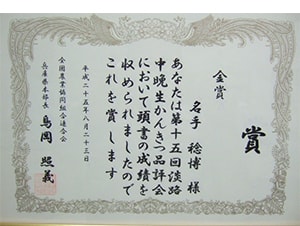 賞
金賞
名手 稔博 様
あなたは第十五回淡路
中晩生かんきつ品評会
において頭書の成績を
収められましたので
これを賞します
平成二十五年八月二十三日
全国農業協同組合連合会
兵庫県本部長
鳥岡 照義